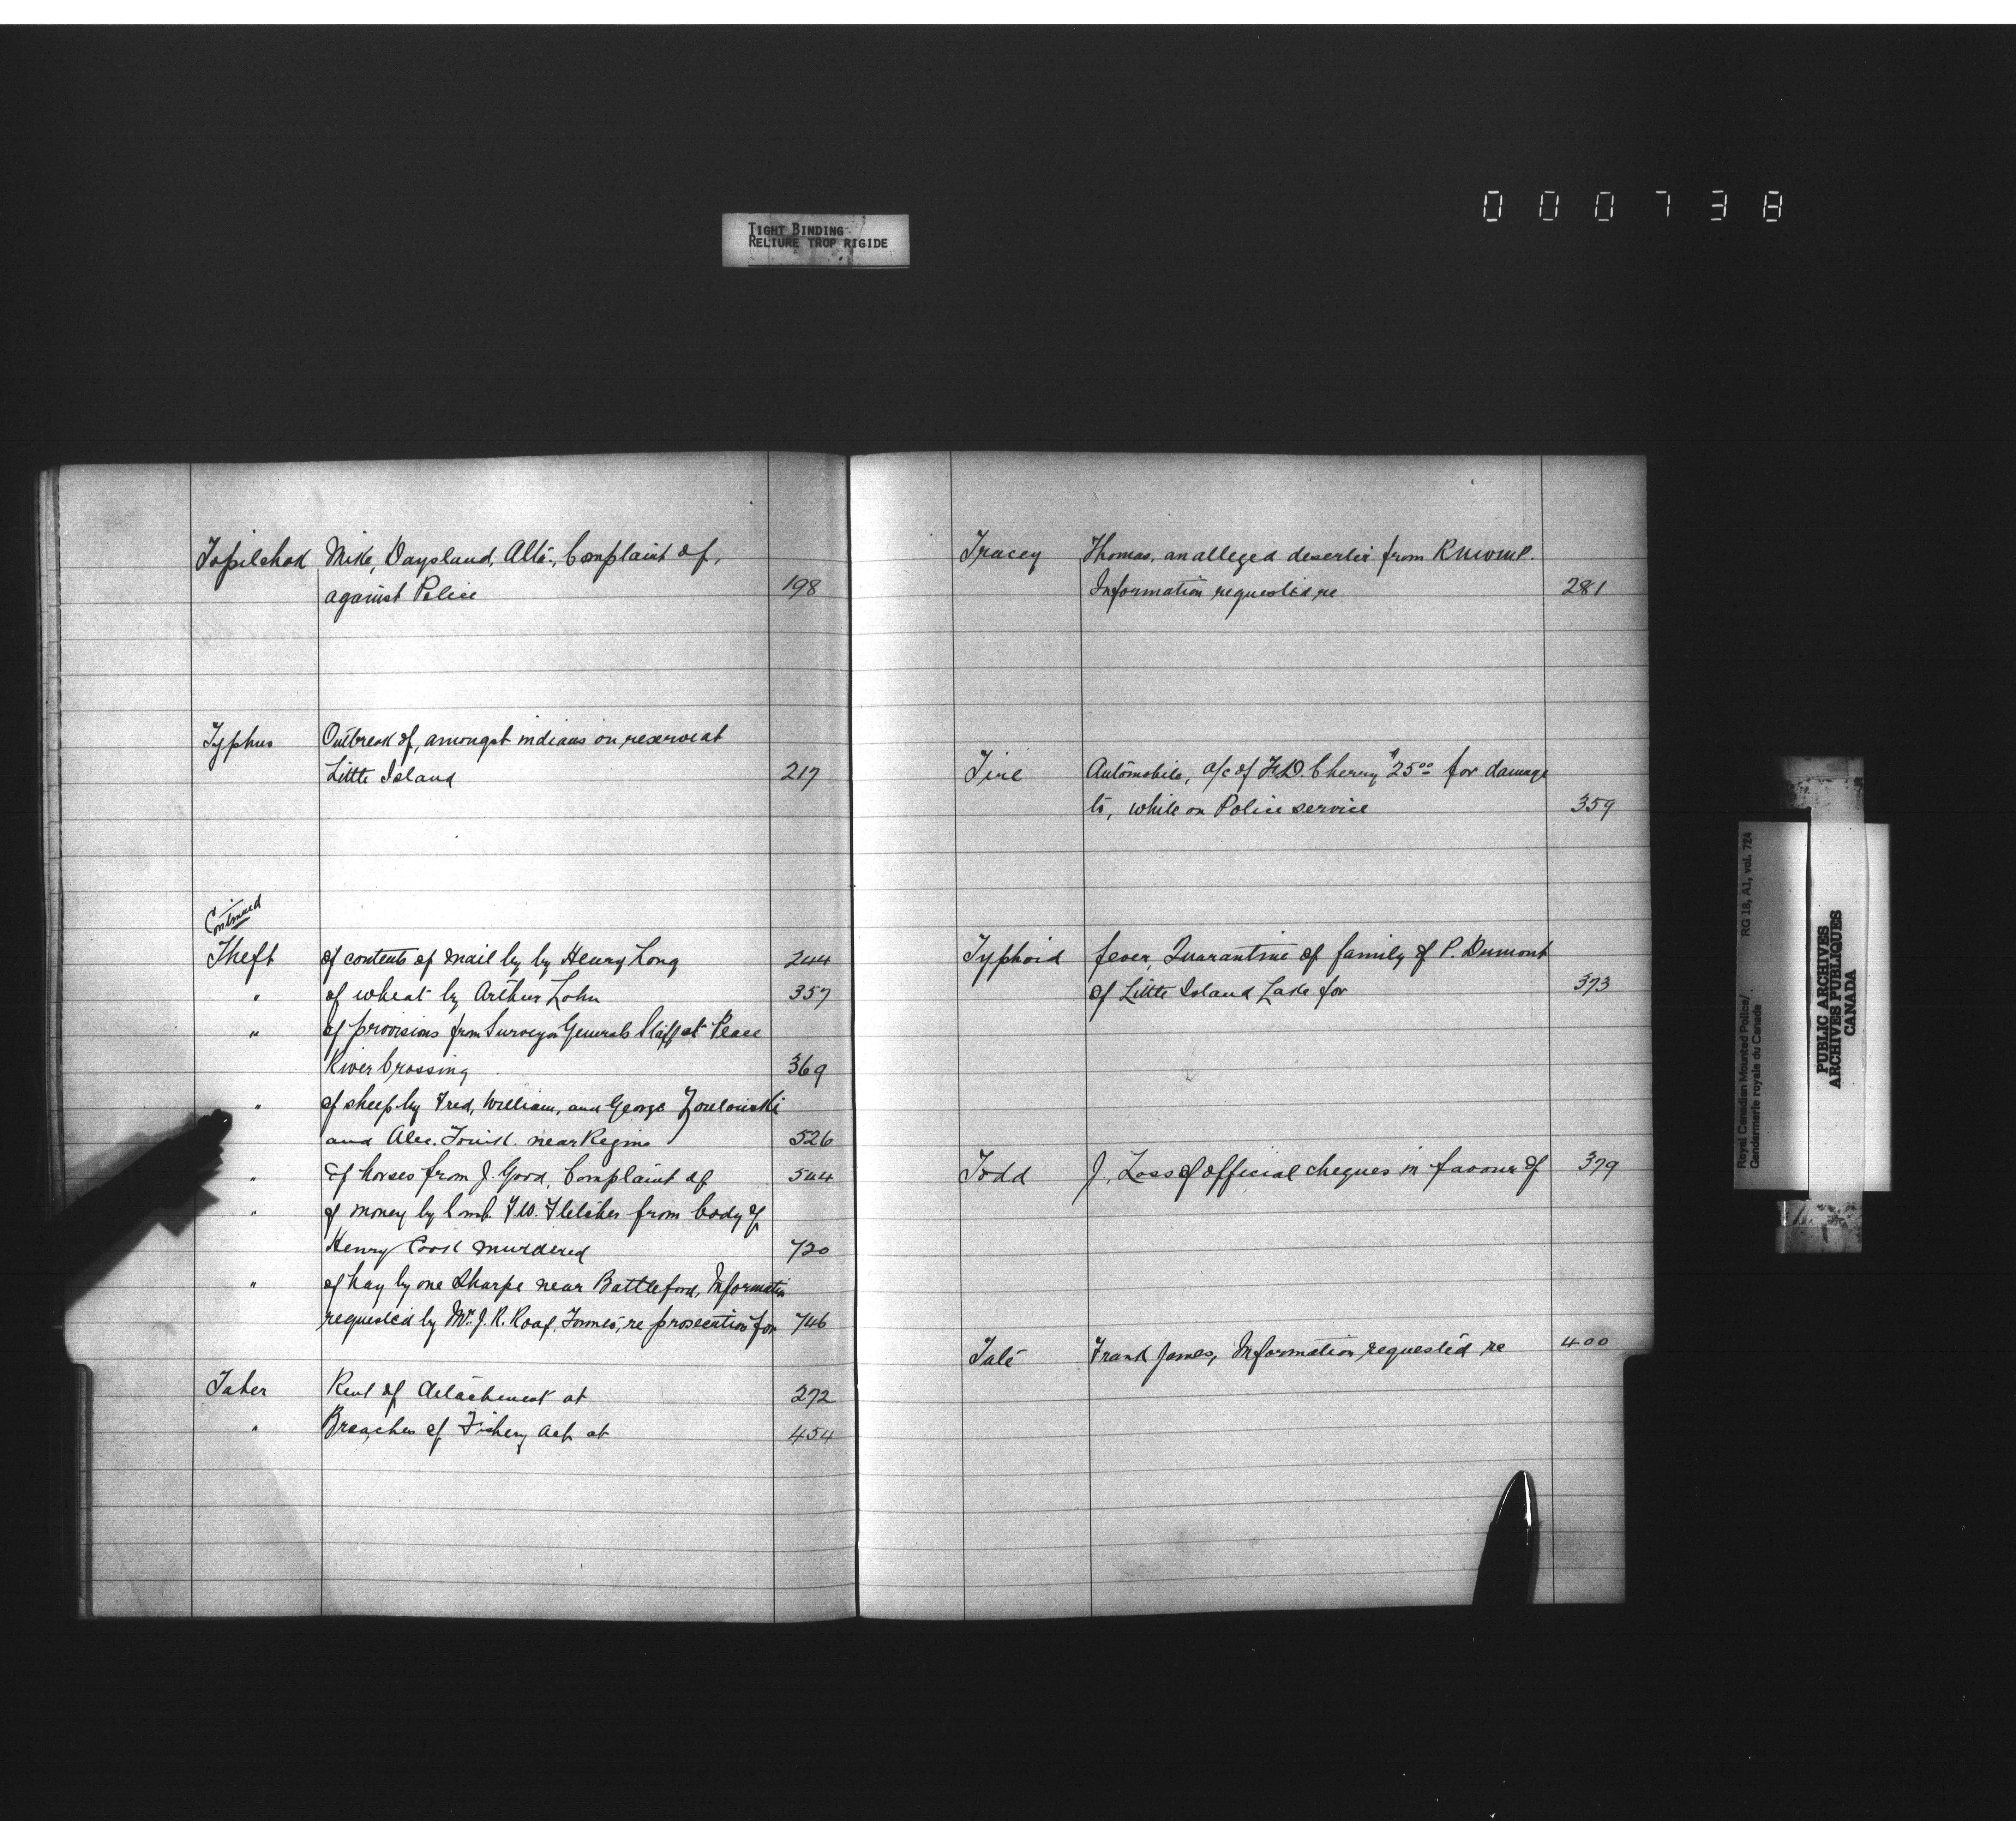 000738
TIGHT BINDING
RELIURE TROP RIGIDE
Topilchak Mike, Daysland, Alta., Complaint of,
against Police 198
Typhus Outbreak of, amongst indians on reserve at
Little Island 217
Continued
Theft of contents of mail by by Henry Long 244
" of wheat by Arthur Lohn 357
" of provisions from Surveyor Generals Staff at Peace
River Crossing 369
" of sheep by Fred, William, and George
and Alec. near Regina 526
" of horses from J. Good, Complaint of 544
" of money by Comb. F.W. Fletcher from body of
Henry Cook murdered 720
" of hay by one Sharpe near Battleford, Information
requested by Mr. J. R. Roaf, re prosecution for 746
Taber Rent of detachment at 272
" Breaches of Fishery Act at 454
Tracey Thomas, an alleged deserter from RNWMP.
Information requested re 281
Tire Automobile, a/c of F.D. Cherry $25.00 for damage
to, while on Police service 359
Typhoid fever, Quarantine of family of P. Dumont
of Little Island Lake for 373
Todd J., Loss of official cheques in favour of 379
Tate Frank James, Information requested re 400
Royal Canadian Mounted Police/
Gendarmerie royale du Canada
RG 18, A1, vol. 724
PUBLIC ARCHIVES
ARCHIVES PUBLIQUES
CANADA